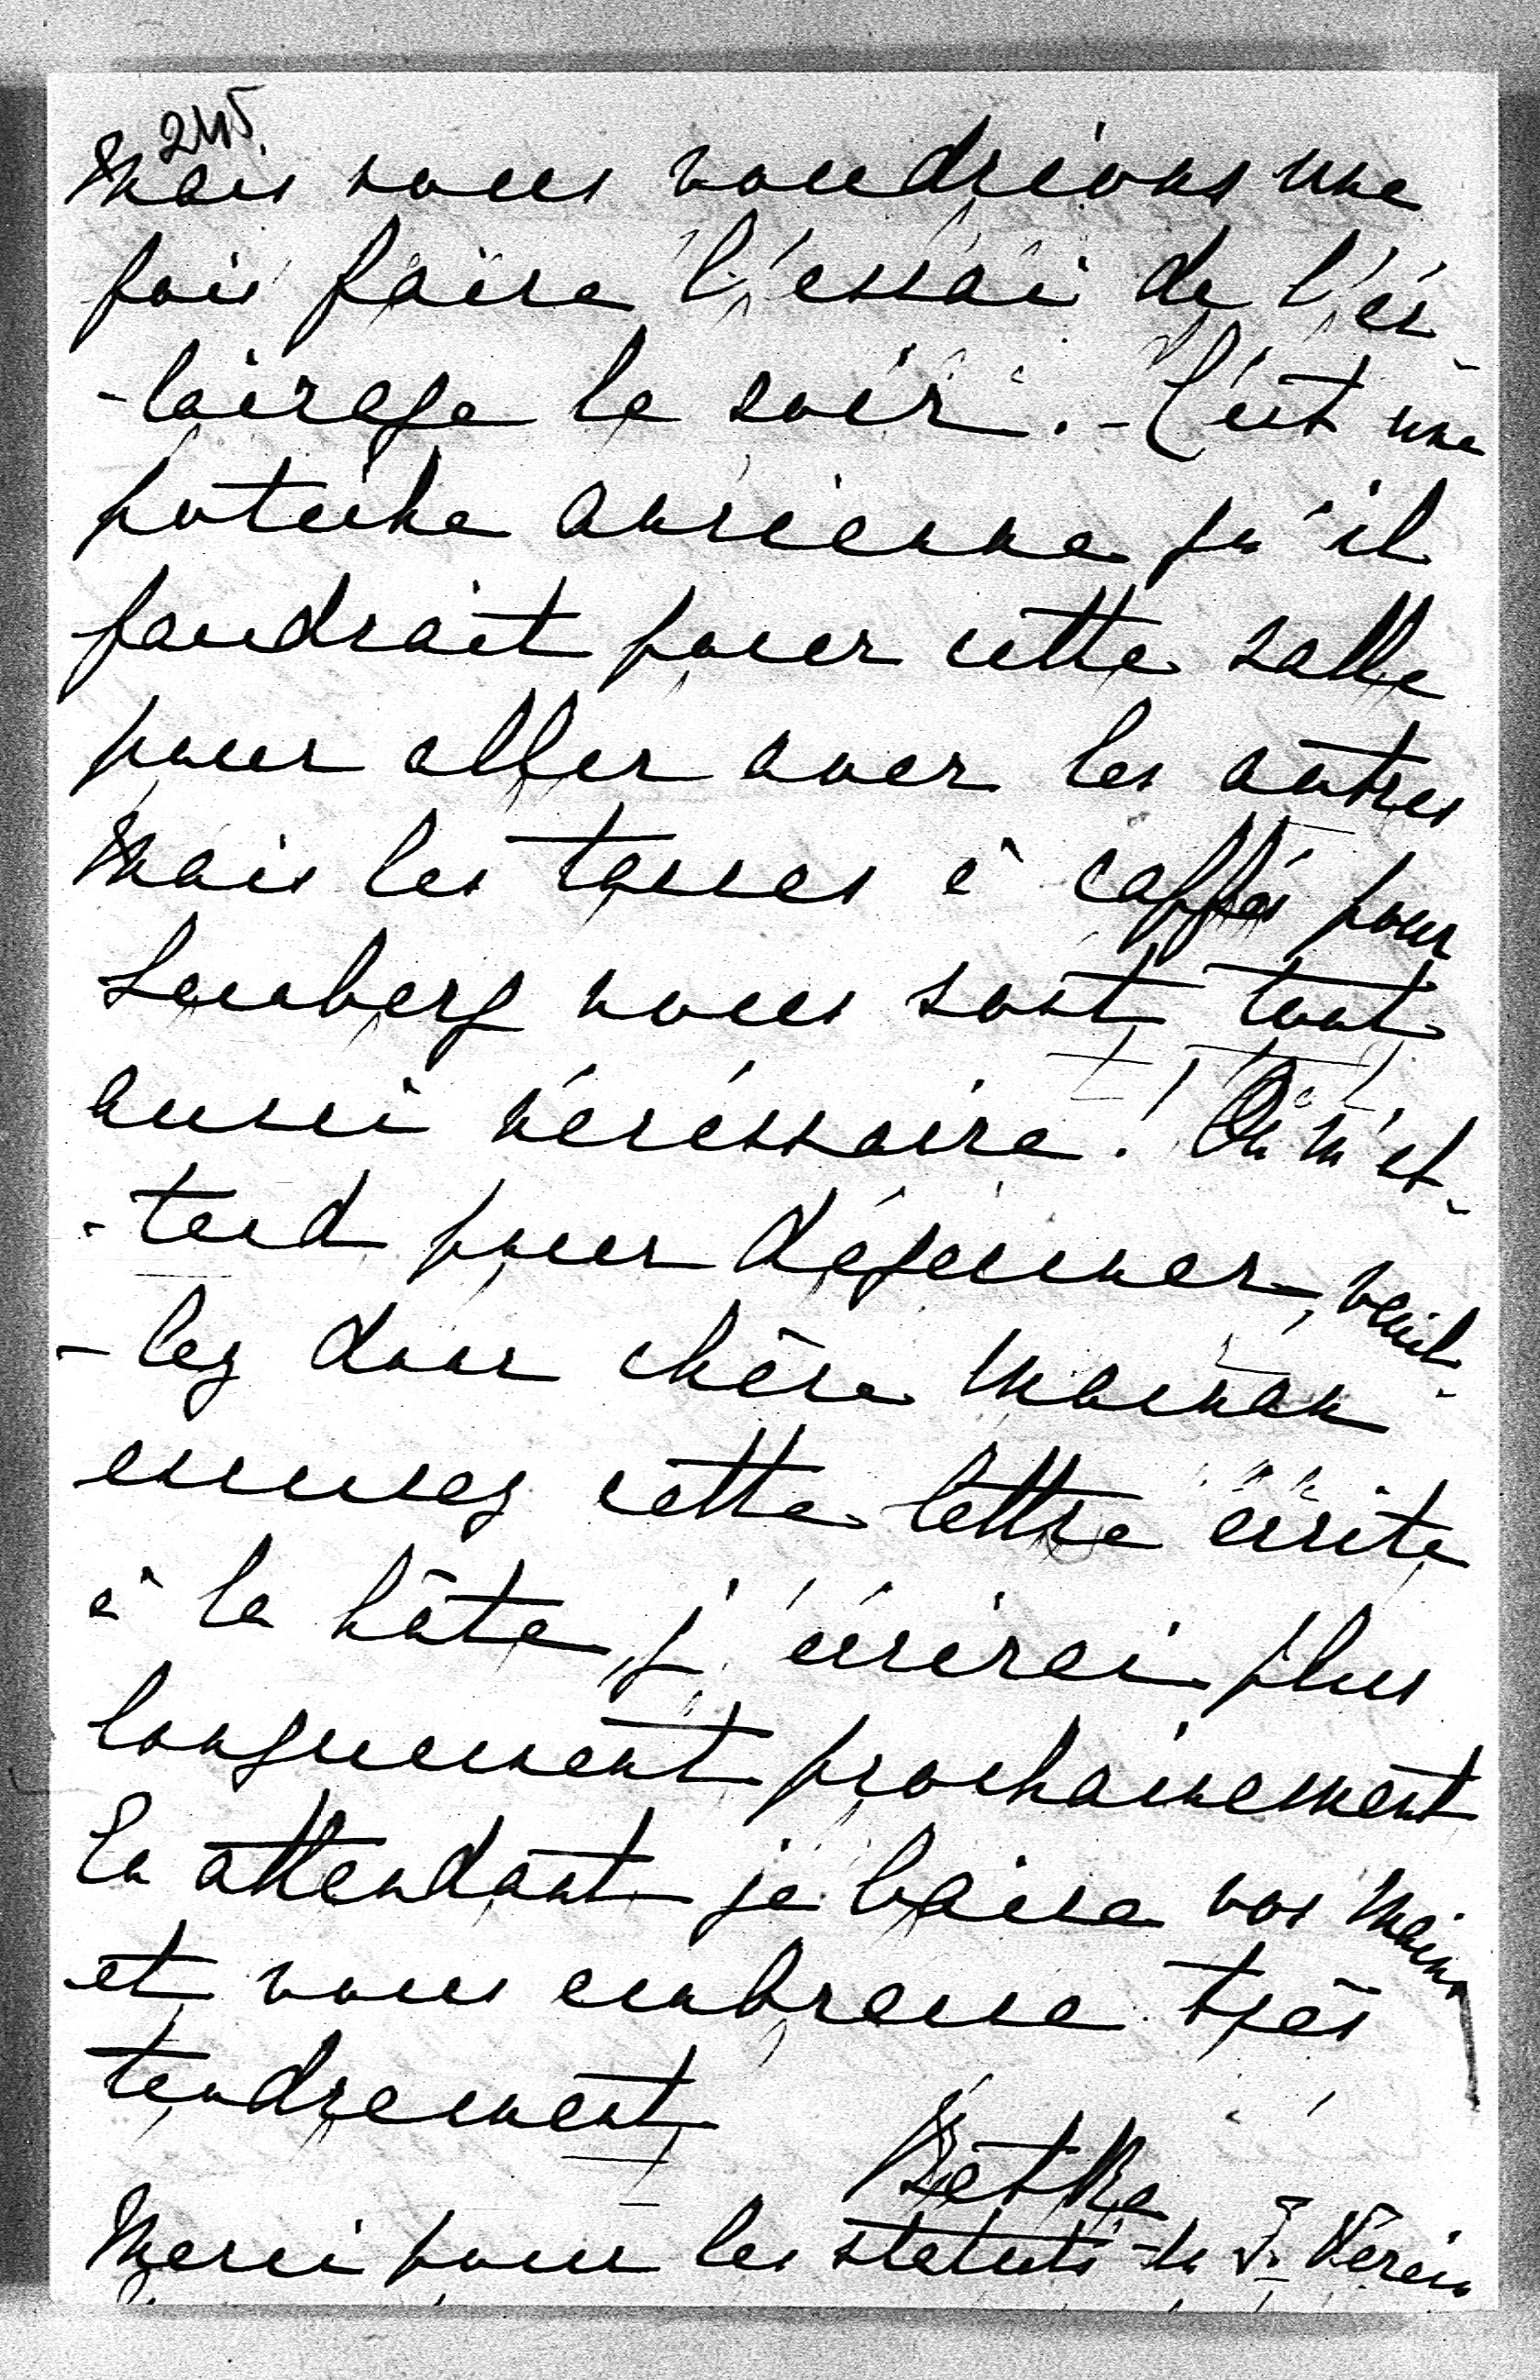 245.
Mais nous voudrions une
fois faire l'essai de l'éc-
-lairage le soir. - C'est une
potiche ancienne qu'il
faudrait pour cette salle
pour aller avec les autres
Mais les tasses à caffés pour
Lemberg nous sont tout
aussi nécéssaire! On m'at-
-tend pour déjeuner, veuil-
-lez donc chère Maman
excusez cette lettre écrite
à la hâte, j'écrirai plus
longuement prochainement
En attendant je baise vos mains
et vous embrasse très
tendrement
Betka
Merci pour les statuts du F. Verein